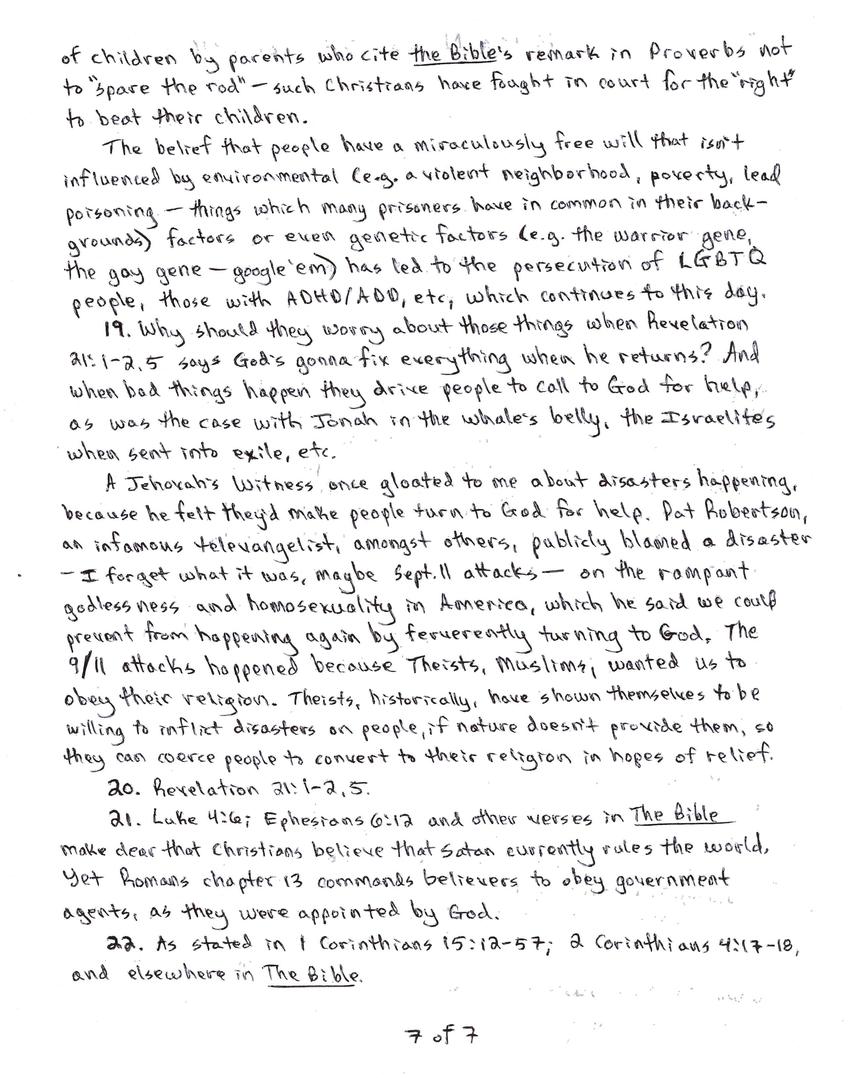 of children by parents who cite the Bible's remark in Proverbs not
to "spare the rod" – such Christians have fought in court for the "right"
to beat their children.
The belief that people have a miraculously free will that isn't
influenced by environmental (e.g. a violent neighborhood, poverty, lead
poisoning – things which many prisoners have in common in their back-
grounds) factors or even genetic factors (e.g. the warrior gene,
the gay gene – google 'em) has led to the persecution of LGBTQ
people, those with ADHD/ADD, etc, which continues to this day.
19. Why should they worry about those things when Revelation
21:1-2,5 says God's gonna fix everything when he returns? And
when bad things happen they drive people to call to God for help,
as was the case with Jonah in the whale's belly, the Israelites
when sent into exile, etc.
A Jehovah's Witness once gloated to me about disasters happening,
because he felt they'd make people turn to God for help. Pat Robertson,
an infamous televangelist, amongst others, publicly blamed a disaster
– I forget what it was, maybe Sept. 11 attacks – on the rampant
godlessness and homosexuality in America, which he said we could
prevent from happening again by ferverently turning to God. The
9/11 attacks happened because Theists, Muslims, wanted us to
obey their religion. Theists, historically, have shown themselves to be
willing to inflict disasters on people, if nature doesn't provide them, so
they can coerce people to convert to their religion in hopes of relief.
20. Revelation 21:1-2,5.
21. Luke 4:6; Ephesians 6:12 and other verses in The Bible
make clear that Christians believe that Satan currently rules the world,
Yet Romans chapter 13 commands believers to obey government
agents, as they were appointed by God.
22. As stated in 1 Corinthians 15:12-57; 2 Corinthians 4:17-18,
and elsewhere in The Bible.
7 of 7